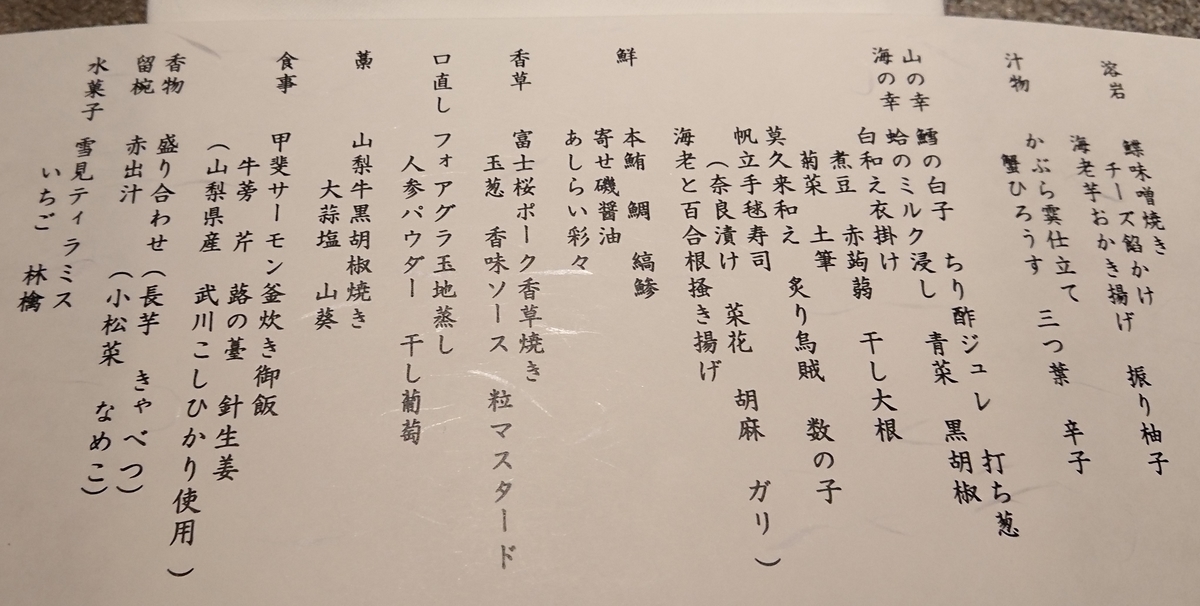 溶岩
鰈味噌焼き
チーズ餡かけ 振り柚子
海老芋おかき揚げ
汁物
かぶら霙仕立て 三つ葉 辛子
蟹ひろうす
山の幸
海の幸
鱈の白子 ちり酢ジュレ 打ち葱
蛤のミルク浸し 青菜 黒胡椒
白和え衣掛け 干し大根
煮豆 赤蒟蒻
菊菜 土筆
莫久来和え 炙り烏賊 数の子
帆立手毬寿司
（奈良漬け 菜花 胡麻 ガリ）
海老と百合根掻き揚げ
鮮
本鮪 鯛 縞鯵
寄せ磯醤油
あしらい彩々
香草
富士桜ポーク香草焼き
玉葱 香味ソース 粒マスタード
口直し
フォアグラ玉地蒸し
人参パウダー 干し葡萄
藁
山梨牛黒胡椒焼き
大蒜塩 山葵
食事
甲斐サーモン釜炊き御飯
牛蒡 芹 蕗の薹 針生姜
（山梨県産 武川こしひかり使用）
香物
盛り合わせ（長芋 きゃべつ）
留椀
赤出汁 （小松菜 なめこ）
水菓子
雪見ティラミス
いちご 林檎